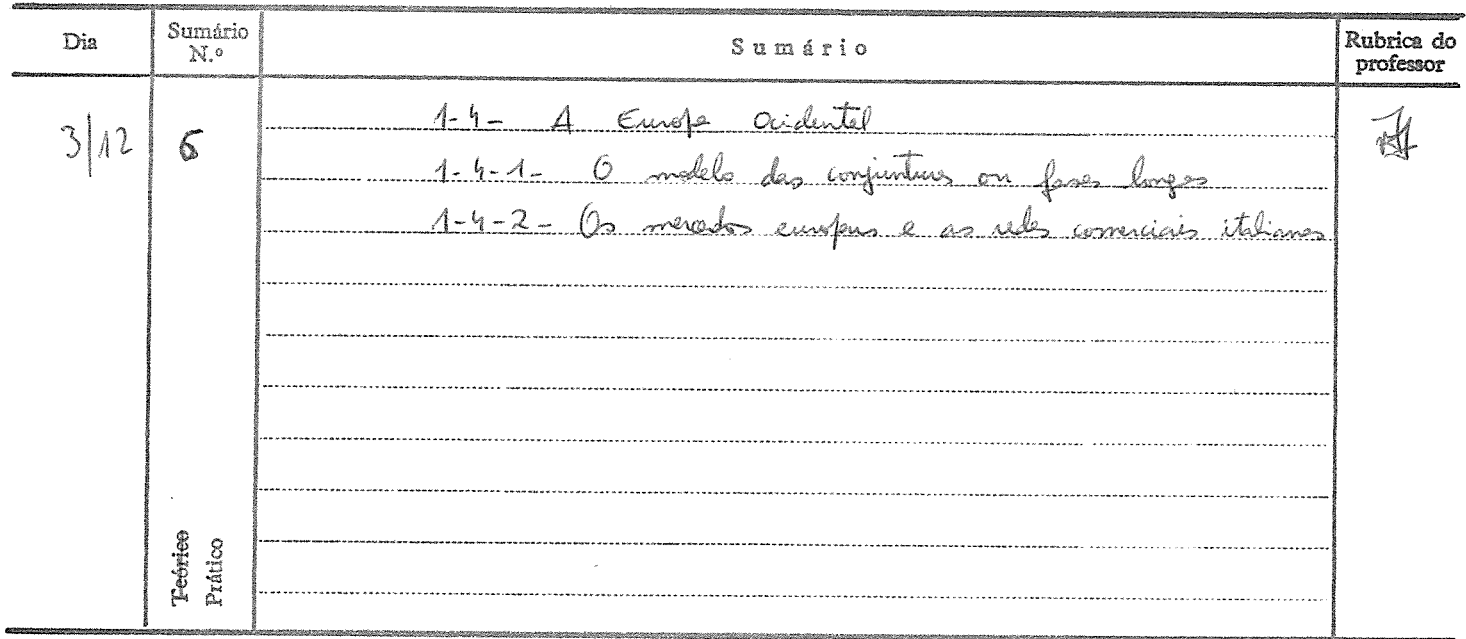 Dia Sumário N.º Sumário Rubrica do professor
3/12 6 1-4- A Europa Ocidental
1-4-1- O modelo das conjunturas ou fases longas
1-4-2- Os mercados europeus e as redes comerciais italianas
Teórico
Prático